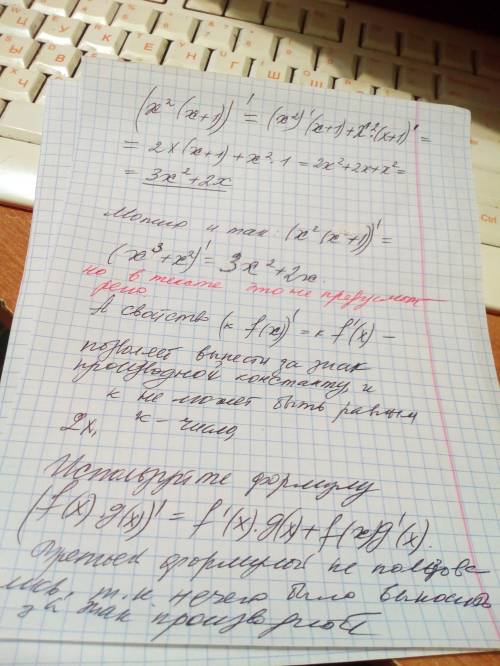 (x²(x+1))' = (x²)'(x+1)+x²·(x+1)' =
= 2x(x+1)+x²·1 = 2x²+2x+x² =
= 3x²+2x
Можно и так (x²(x+1))' =
(x³+x²)' = 3x²+2x
но в тексте это не предусмот
рено.
А свойство (к f(x))' = к f'(x) –
позволяет вынести за знак
производной константу, и
к не может быть равным
2x, к – число,
Используйте формулу
(f(x)·g(x))' = f'(x)·g(x)+f(x)g'(x).
Третьей формулой не пользова
лись, т.к. нечего было выносить
за знак производной